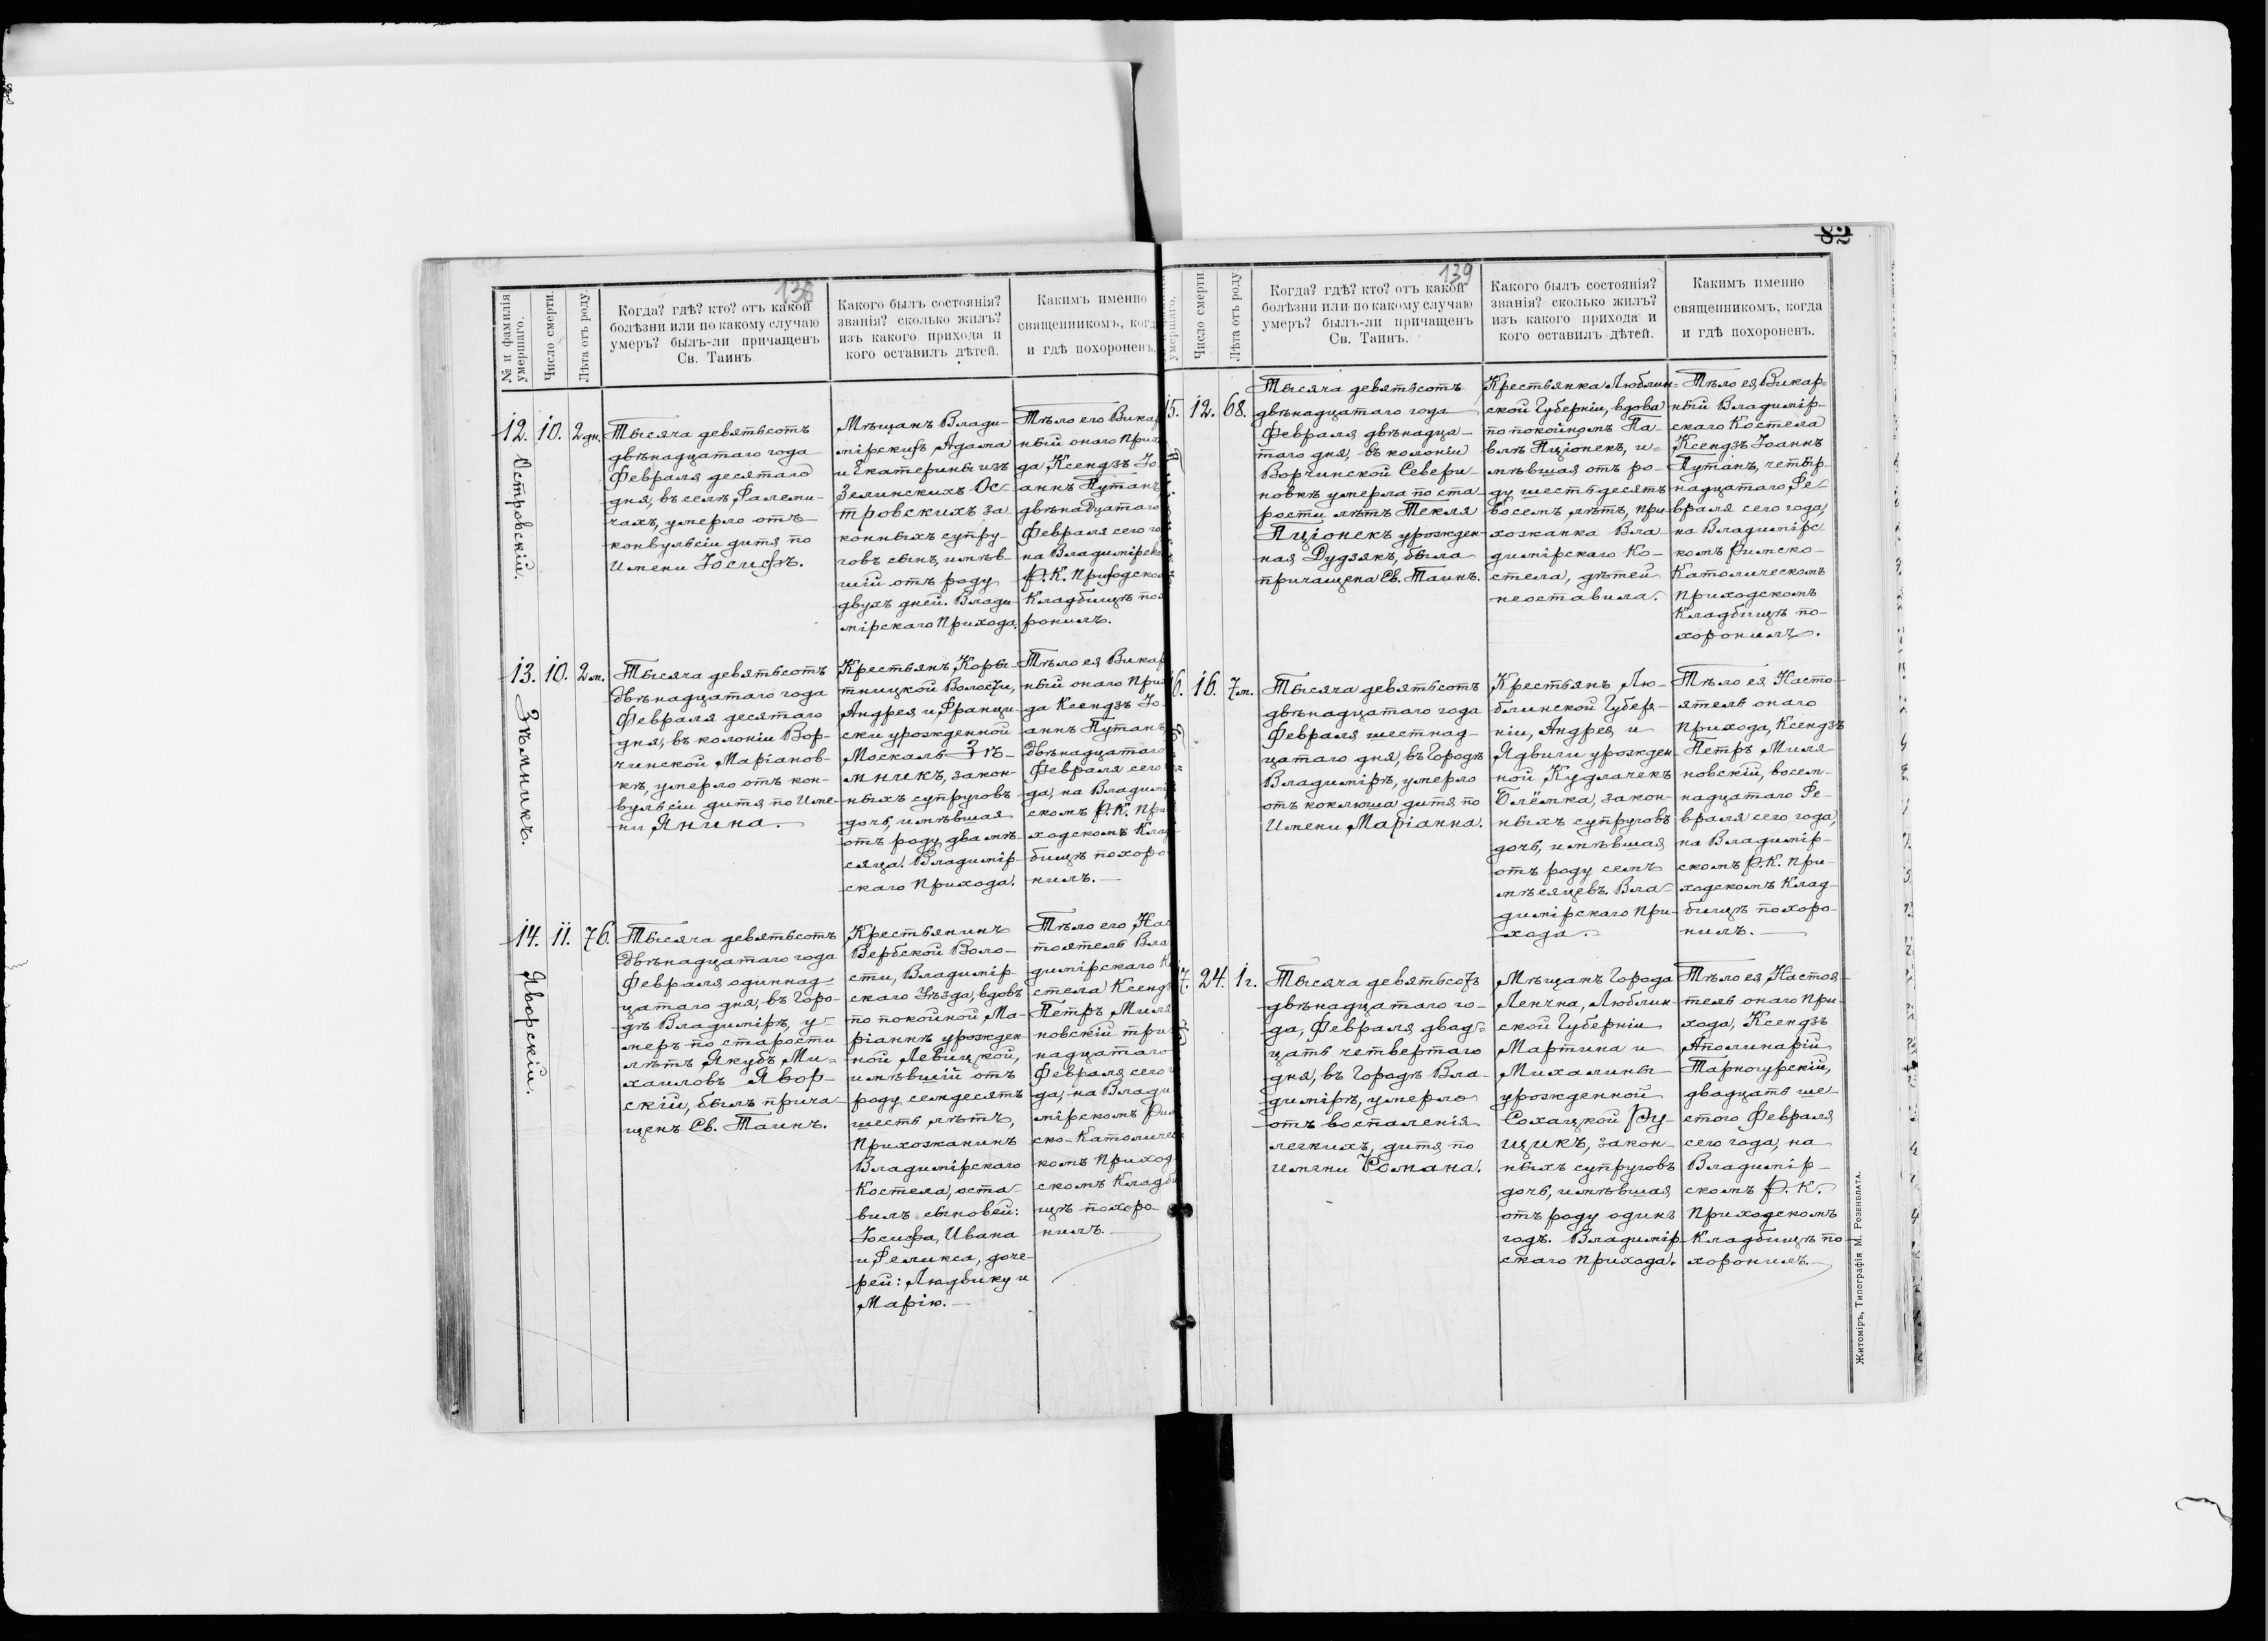 136
№ и фамилія
умершаго.
Число смерти.
Лѣта отъ роду.
Когда? гдѣ? кто? отъ какой
болѣзни или по какому случаю
умеръ? былъ-ли причащенъ
Св. Таинъ
Какого былъ состоянія?
званія? сколько жилъ?
изъ какого прихода и
кого оставилъ дѣтей.
Какимъ именно
священникомъ, когд
и гдѣ похороненъ.
12.
Островскій.
10.
2 дн.
Тысяча девятьсотъ
двѣнадцатаго года
Февраля десятаго
дня, въ селѣ Фалеми-
чахъ, умерло отъ
конвульсіи дитя по
Имени Іосифъ.
Мѣщанъ Влади-
мірскихъ, Адама
и Екатерины изъ
Зелинскихъ Ос-
тровскихъ за
конныхъ супру-
говъ сынъ, имѣв-
шій отъ роду
двухъ дней. Влади
мірскаго Прихода.
Тѣло его Вика
ный онаго Прих
да, Ксендзъ Іо
аннъ Путанъ,
двѣнадцатаго
Февраля сего го
на Владимірско
Р. К. Приходском
Кладбищѣ пох
ронилъ.
13.
Зѣмникъ.
10.
2 м.
Тысяча девятьсотъ
двѣнадцатаго года
Февраля десятаго
дня, въ колоніи Вор-
чинской Маріанов-
кѣ, умерло отъ кон-
вульсіи дитя по Име-
ни Янина.
Крестьянъ Коры-
тницкой Волости,
Андрея и Франци
ски урожденной
Москаль Зѣ-
мникъ, закон-
ныхъ супруговъ
дочь, имѣвшая
отъ роду два мѣ
сяца. Владимір-
скаго Прихода.
Тѣло ея Викар
ный онаго При
да Ксендзъ Іо-
аннъ Путанъ,
двѣнадцатаго
Февраля сего
да, на Владимі
скомъ Р. К. При
ходскомъ Клад
бищѣ похоро
нилъ.
14.
Яворскій.
11.
76.
Тысяча девятьсотъ
двѣнадцатаго года
Февраля одиннад-
цатаго дня, въ Горо-
дѣ Владимірѣ, у-
меръ по старости
лѣтъ Якубъ Ми-
хаиловъ Явор-
скій, былъ прича-
щенъ Св. Таинъ.
Крестьянинъ
Вербской Воло-
сти, Владимір
скаго Уѣзда, вдовъ
по покойной Ма-
ріаннѣ урожден
ной Левицкой,
имѣвшій отъ
роду семдесятъ
шесть лѣтъ,
Прихожанинъ
Владимірскаго
Костела, оста-
вилъ сыновей:
Іосифа, Ивана
и Феликса, доче-
рей: Людвику и
Марію.
Тѣло его Нас
тоятель Вла
димірскаго К
стела Ксендз
Петръ Миля
новскій три
надцатаго
Февраля сего
да, на Влади
мірскомъ Рим
ско-Католичес
комъ Приход
скомъ Кладби
щѣ похоро-
нилъ.
82
139
умершаго.
Число смерти
Лѣта отъ роду
Когда? гдѣ? кто? отъ какой
болѣзни или по какому случаю
умеръ? былъ-ли причащенъ
Св. Таинъ.
Какого былъ состоянія?
званія? сколько жилъ?
изъ какого прихода и
кого оставилъ дѣтей.
Какимъ именно
священникомъ, когда
и гдѣ похороненъ.
15.
12.
68.
Тысяча девятьсотъ
двѣнадцатаго года
Февраля двѣнадца-
таго дня, въ колоніи
Ворчинской Севери-
новкѣ умерла по ста-
рости лѣтъ Текля
Пціонекъ урожден-
ная Дудзякъ, была
причащена Св. Таинъ.
Крестьянка Люблин-
ской Губерніи, вдова
по покойномъ Па-
влѣ Пціонекъ, и-
мѣвшая отъ ро-
ду шестьдесятъ
восемъ лѣтъ, при
хожанка Вла-
димірскаго Ко-
стела, дѣтей
неоставила.
Тѣло ея, Викар-
ный Владимір-
скаго Костела
Ксендзъ Іоаннъ
Путанъ, четыр-
надцатаго Фе-
враля сего года,
на Владимірс
комъ Римско-
Католическомъ
Приходскомъ
Кладбищѣ по-
хоронилъ.
16.
16.
7 м.
Тысяча девятьсотъ
двѣнадцатаго года
Февраля шестнад-
цатаго дня, въ Городѣ
Владимірѣ, умерло
отъ коклюша дитя по
Имени Маріанна.
Крестьянъ Лю-
блинской Губер-
ніи, Андрея и
Ядвиги урожден
ной Кудлачекъ
Блёмка, закон-
ныхъ супруговъ
дочь, имѣвшая
отъ роду семъ
мѣсяцевъ. Вла-
димірскаго При-
хода.
Тѣло ея, Насто-
ятель онаго
Прихода, Ксендзъ
Петръ Миля
новскій, восем-
надцатаго Фе-
враля сего года,
на Владимір-
скомъ Р. К. При-
ходскомъ Клад-
бищѣ похоро
нилъ.
17.
24.
1 г.
Тысяча девятьсотъ
двѣнадцатаго го-
да, Февраля двад-
цать четвертаго
дня, въ Городѣ Вла-
димірѣ, умерло
отъ воспаленія
легкихъ, дитя по
Имени Романа.
Мѣщанъ Города
Ленчна, Люблин-
ской Губерніи
Мартина и
Михалины
урожденной
Сохацкой Ру-
щикъ, закон-
ныхъ супруговъ
дочь, имѣвшая
отъ роду одинъ
годъ. Владимір-
скаго Прихода.
Тѣло ея, Настоя-
тель онаго При-
хода, Ксендзъ
Аполинарій
Тарногурскій,
двадцать ше-
стого Февраля
сего года, на
Владимір-
скомъ Р. К.
Приходскомъ
Кладбищѣ по-
хоронилъ.
Житоміръ, Типографія М. Розенблата.